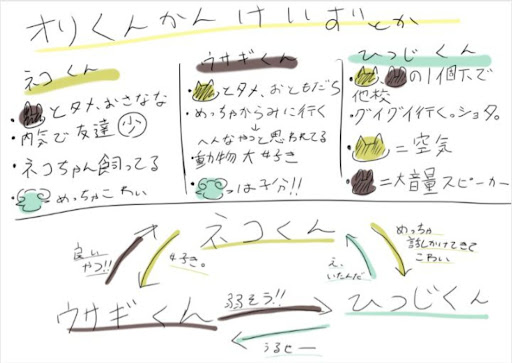 オリくんかんけいずとか
ネコくん
・とタメ、おさななな
・内気で友達少
・ネコちゃん飼ってる
・めっちゃこわい
ウサギくん
・とタメ、おともだち
・めっちゃからみに行く
へんなやつと思われてる
・動物大好き
・っは子分!!
ひつじくん
・、の1個下で
他校
・グイグイ行く。ショタ。
=空気
=大音量スピーカー
ネコくん
良い
やつ!!
好き。
え、
いたんだ
めっちゃ
話しかけてきて
こわい
ウサギくん
弱そう!!
ひつじくん
うるせー